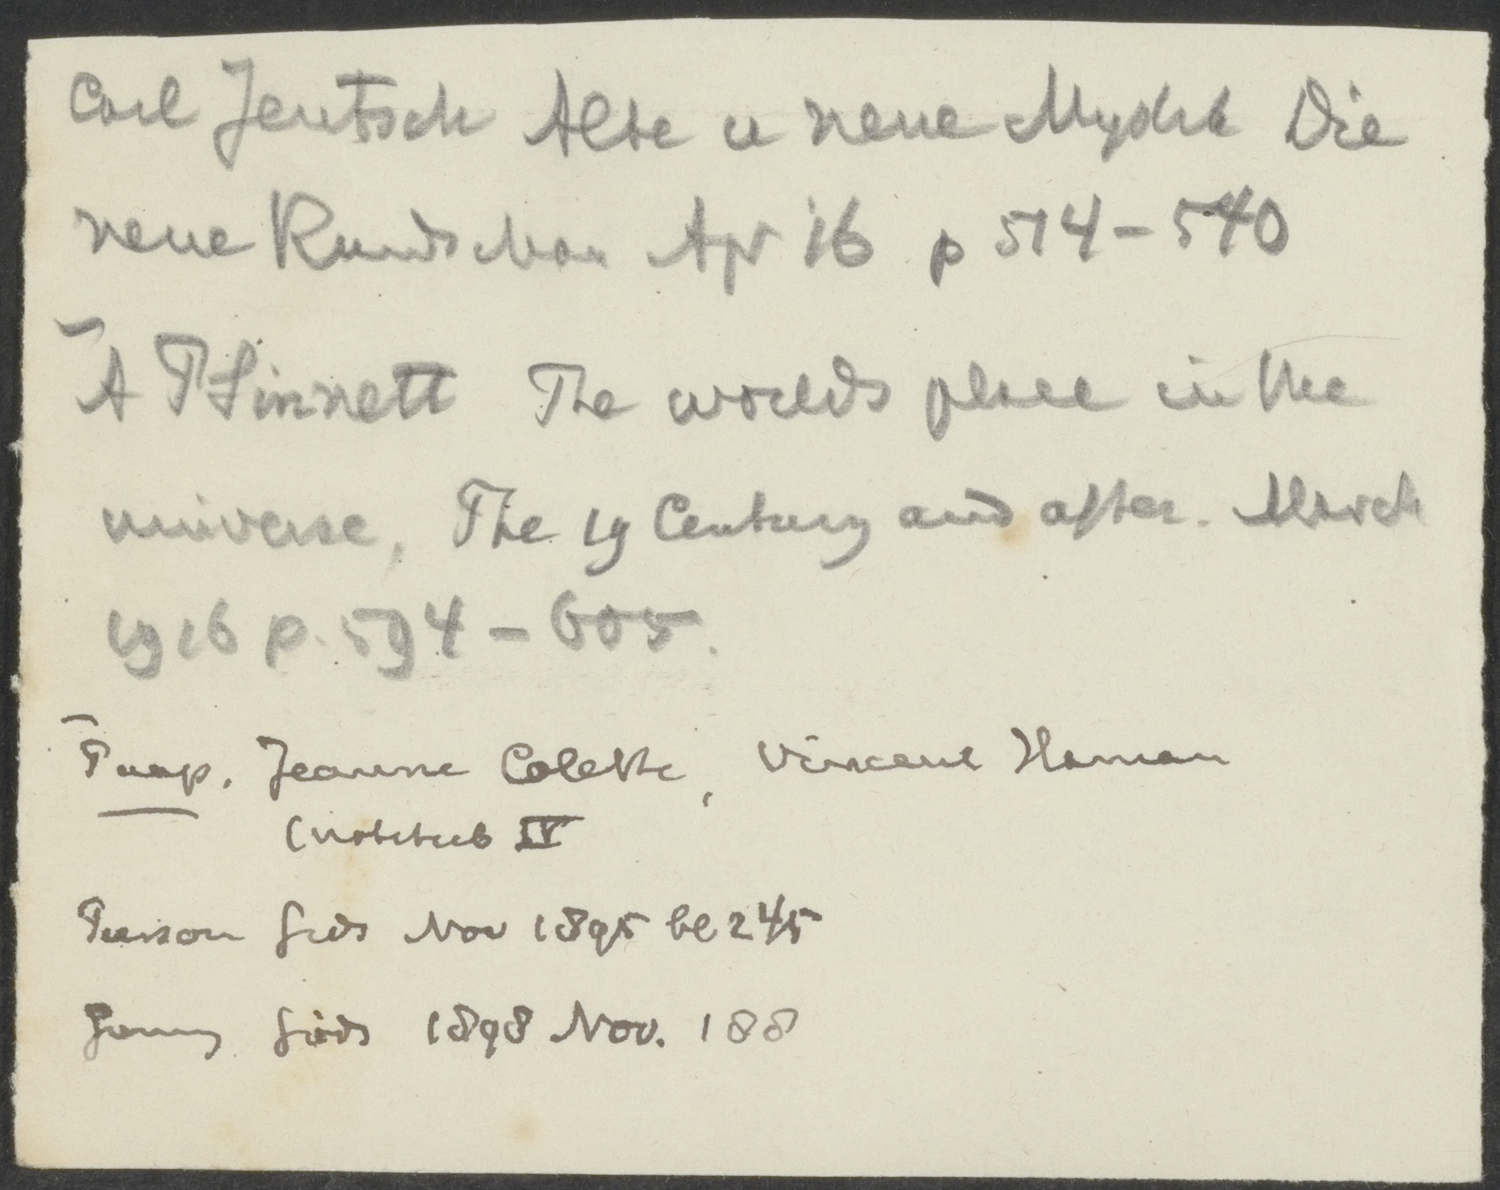 Carl Jentsch Alte u neue Mystik Die
neue Rundschau Apr 16 p 514-540
A P Sinnett The worlds place in the
universe, The 19 Century and after. March
1916 p. 594-605.
Jeanne Colette, Vincent
IV
Nov 1895 bl 245
1898 Nov. 188